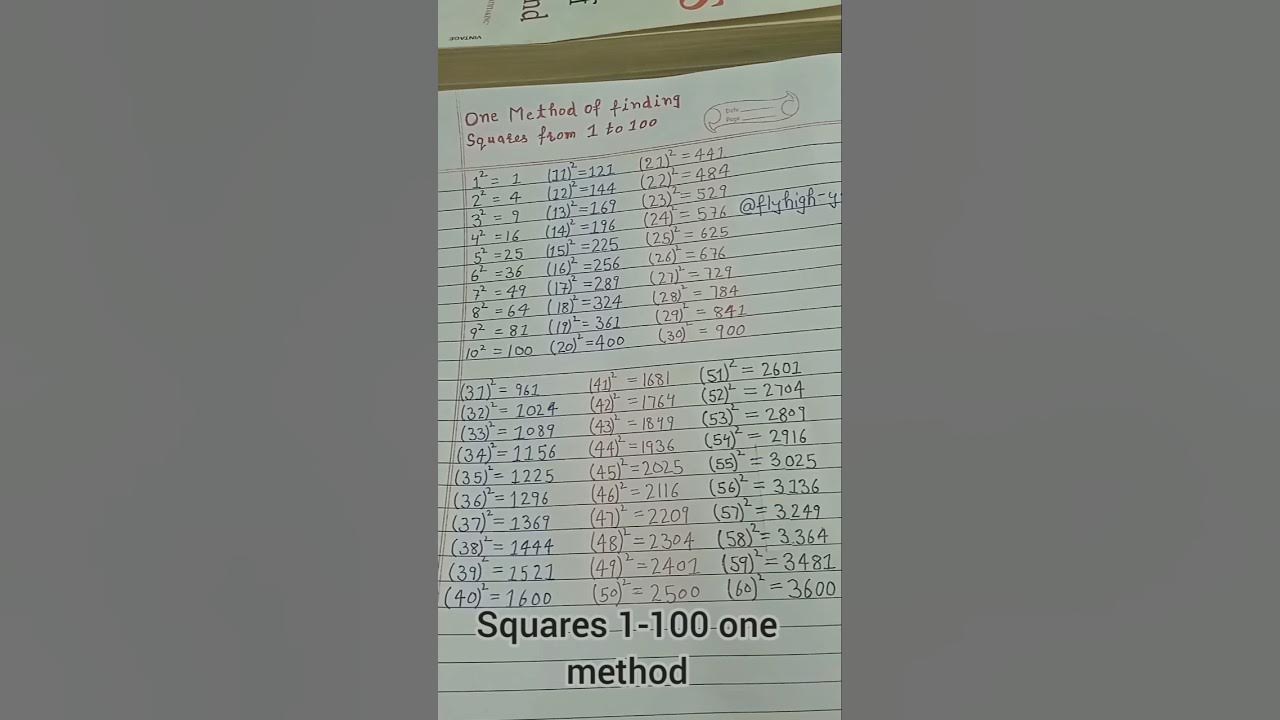 VINTAGE
One Method of finding
Squares from 1 to 100
Date
Page
1² = 1 (11)² = 121 (21)² = 441
2² = 4 (12)² = 144 (22)² = 484
3² = 9 (13)² = 169 (23)² = 529
4² = 16 (14)² = 196 (24)² = 576 @flyhigh-y
5² = 25 (15)² = 225 (25)² = 625
6² = 36 (16)² = 256 (26)² = 676
7² = 49 (17)² = 289 (27)² = 729
8² = 64 (18)² = 324 (28)² = 784
9² = 81 (19)² = 361 (29)² = 841
10² = 100 (20)² = 400 (30)² = 900
(31)² = 961 (41)² = 1681 (51)² = 2601
(32)² = 1024 (42)² = 1764 (52)² = 2704
(33)² = 1089 (43)² = 1849 (53)² = 2809
(34)² = 1156 (44)² = 1936 (54)² = 2916
(35)² = 1225 (45)² = 2025 (55)² = 3025
(36)² = 1296 (46)² = 2116 (56)² = 3136
(37)² = 1369 (47)² = 2209 (57)² = 3249
(38)² = 1444 (48)² = 2304 (58)² = 3364
(39)² = 1521 (49)² = 2401 (59)² = 3481
(40)² = 1600 (50)² = 2500 (60)² = 3600
Squares 1-100 one
method